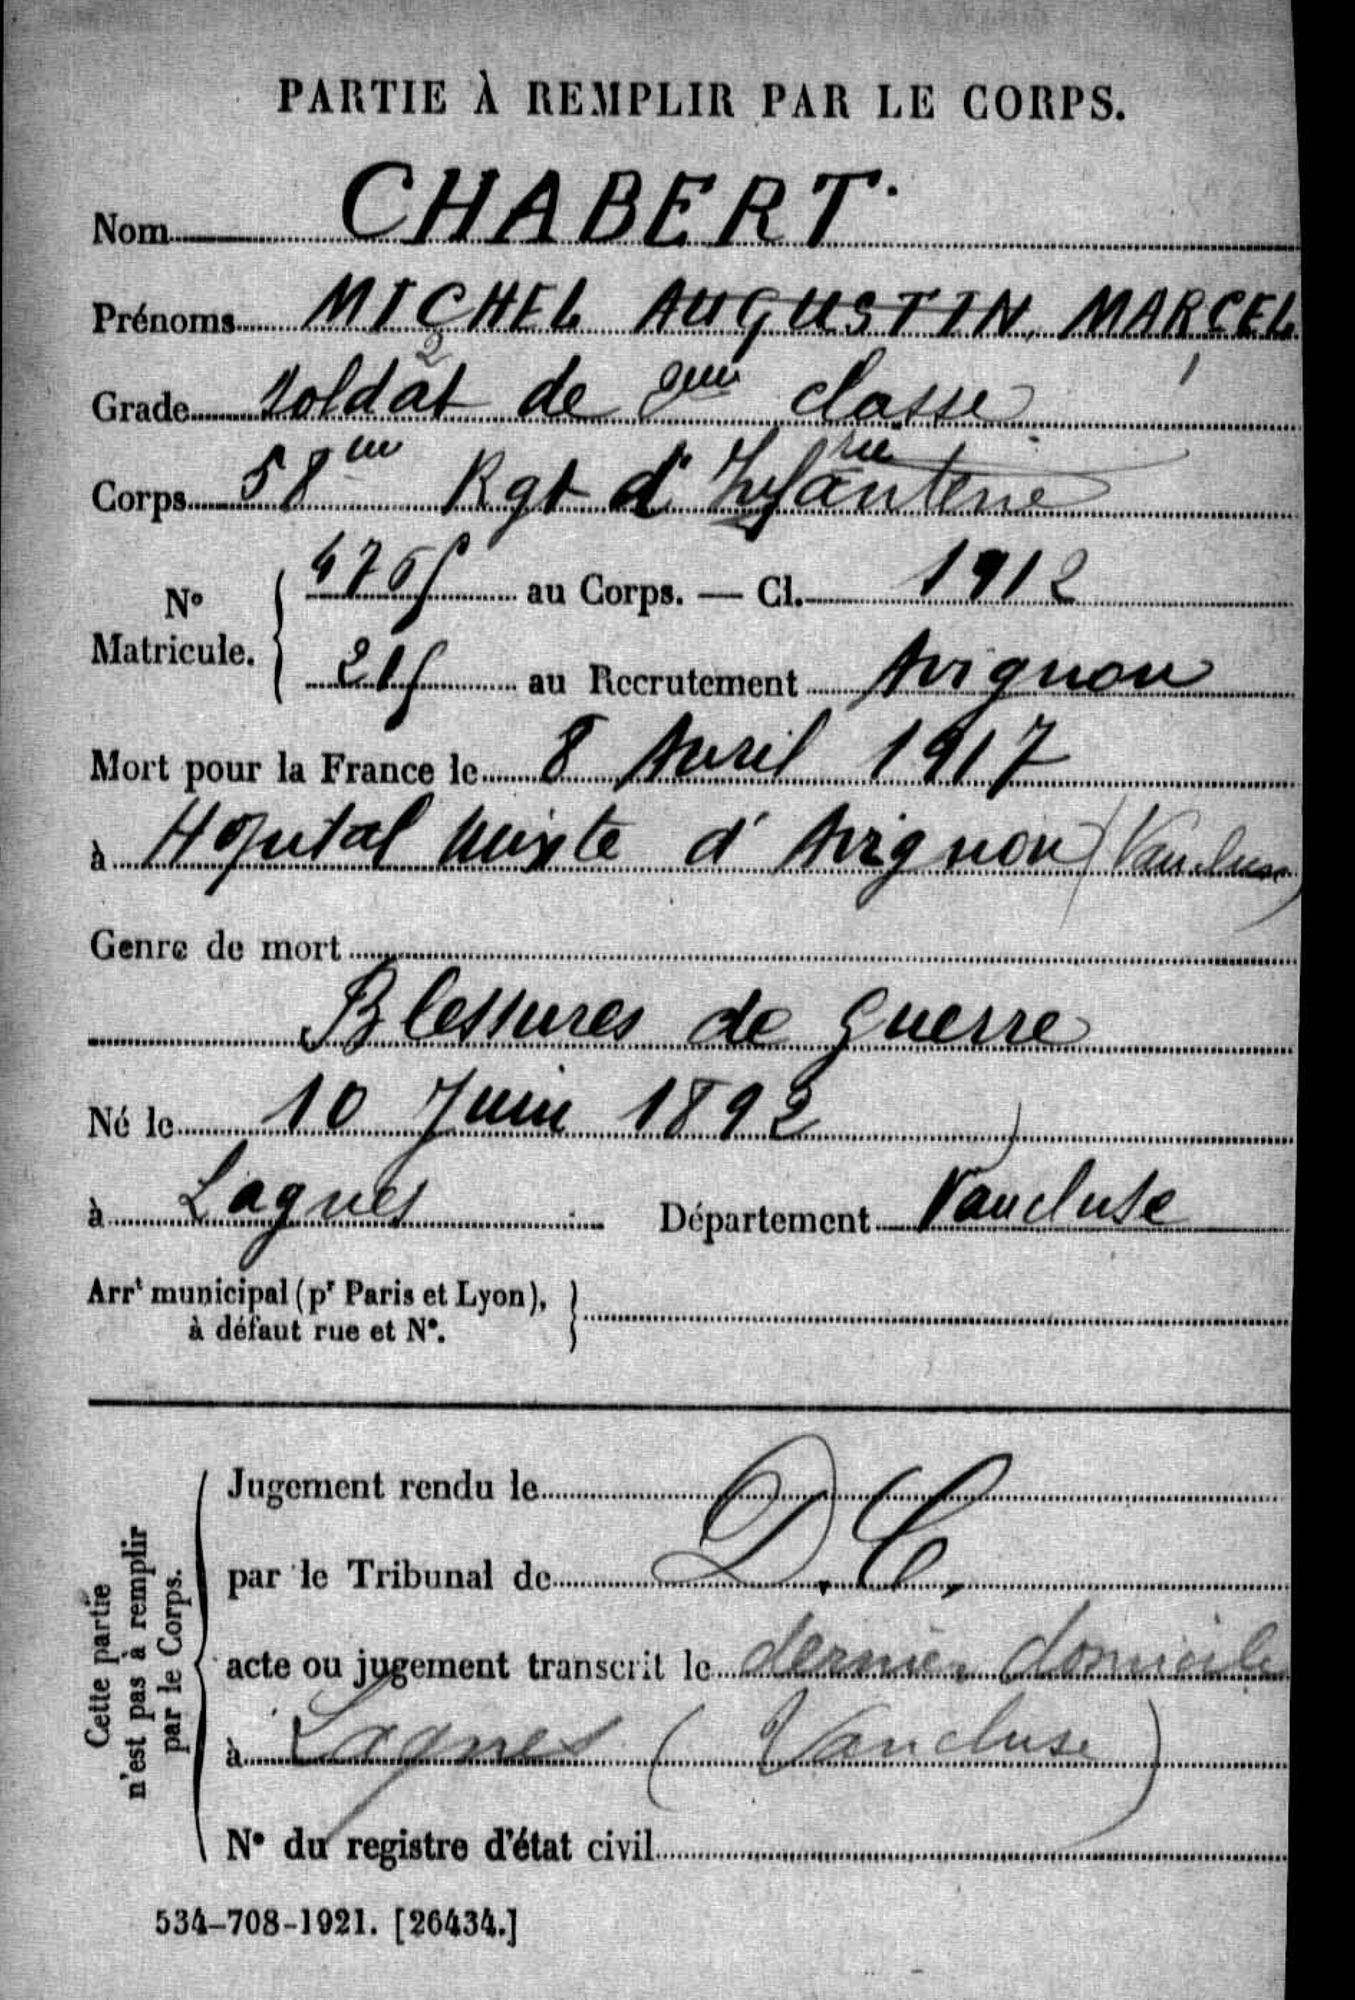 PARTIE À REMPLIR PAR LE CORPS.
Nom CHABERT.
Prénoms MICHEL AUGUSTIN, MARCEL
Grade Soldat de 2me classe
Corps 58me Rgt d'Infanterie
No Matricule. au Corps. — Cl. 1912
au Recrutement Avignon
Mort pour la France le 8 Avril 1917
à Hopital mixte d'Avignon (Vaucluse)
Genre de mort
Blessures de Guerre
Né le 10 Juin 1892
à Lagnes Département Vaucluse
Arrt municipal (pr Paris et Lyon),
à défaut rue et No.
Cette partie
n'est pas à remplir
par le Corps.
Jugement rendu le D.C.
par le Tribunal de
acte ou jugement transcrit le dernier domicile
à Lagnes (Vaucluse)
No du registre d'état civil
534-708-1921. [26434.]